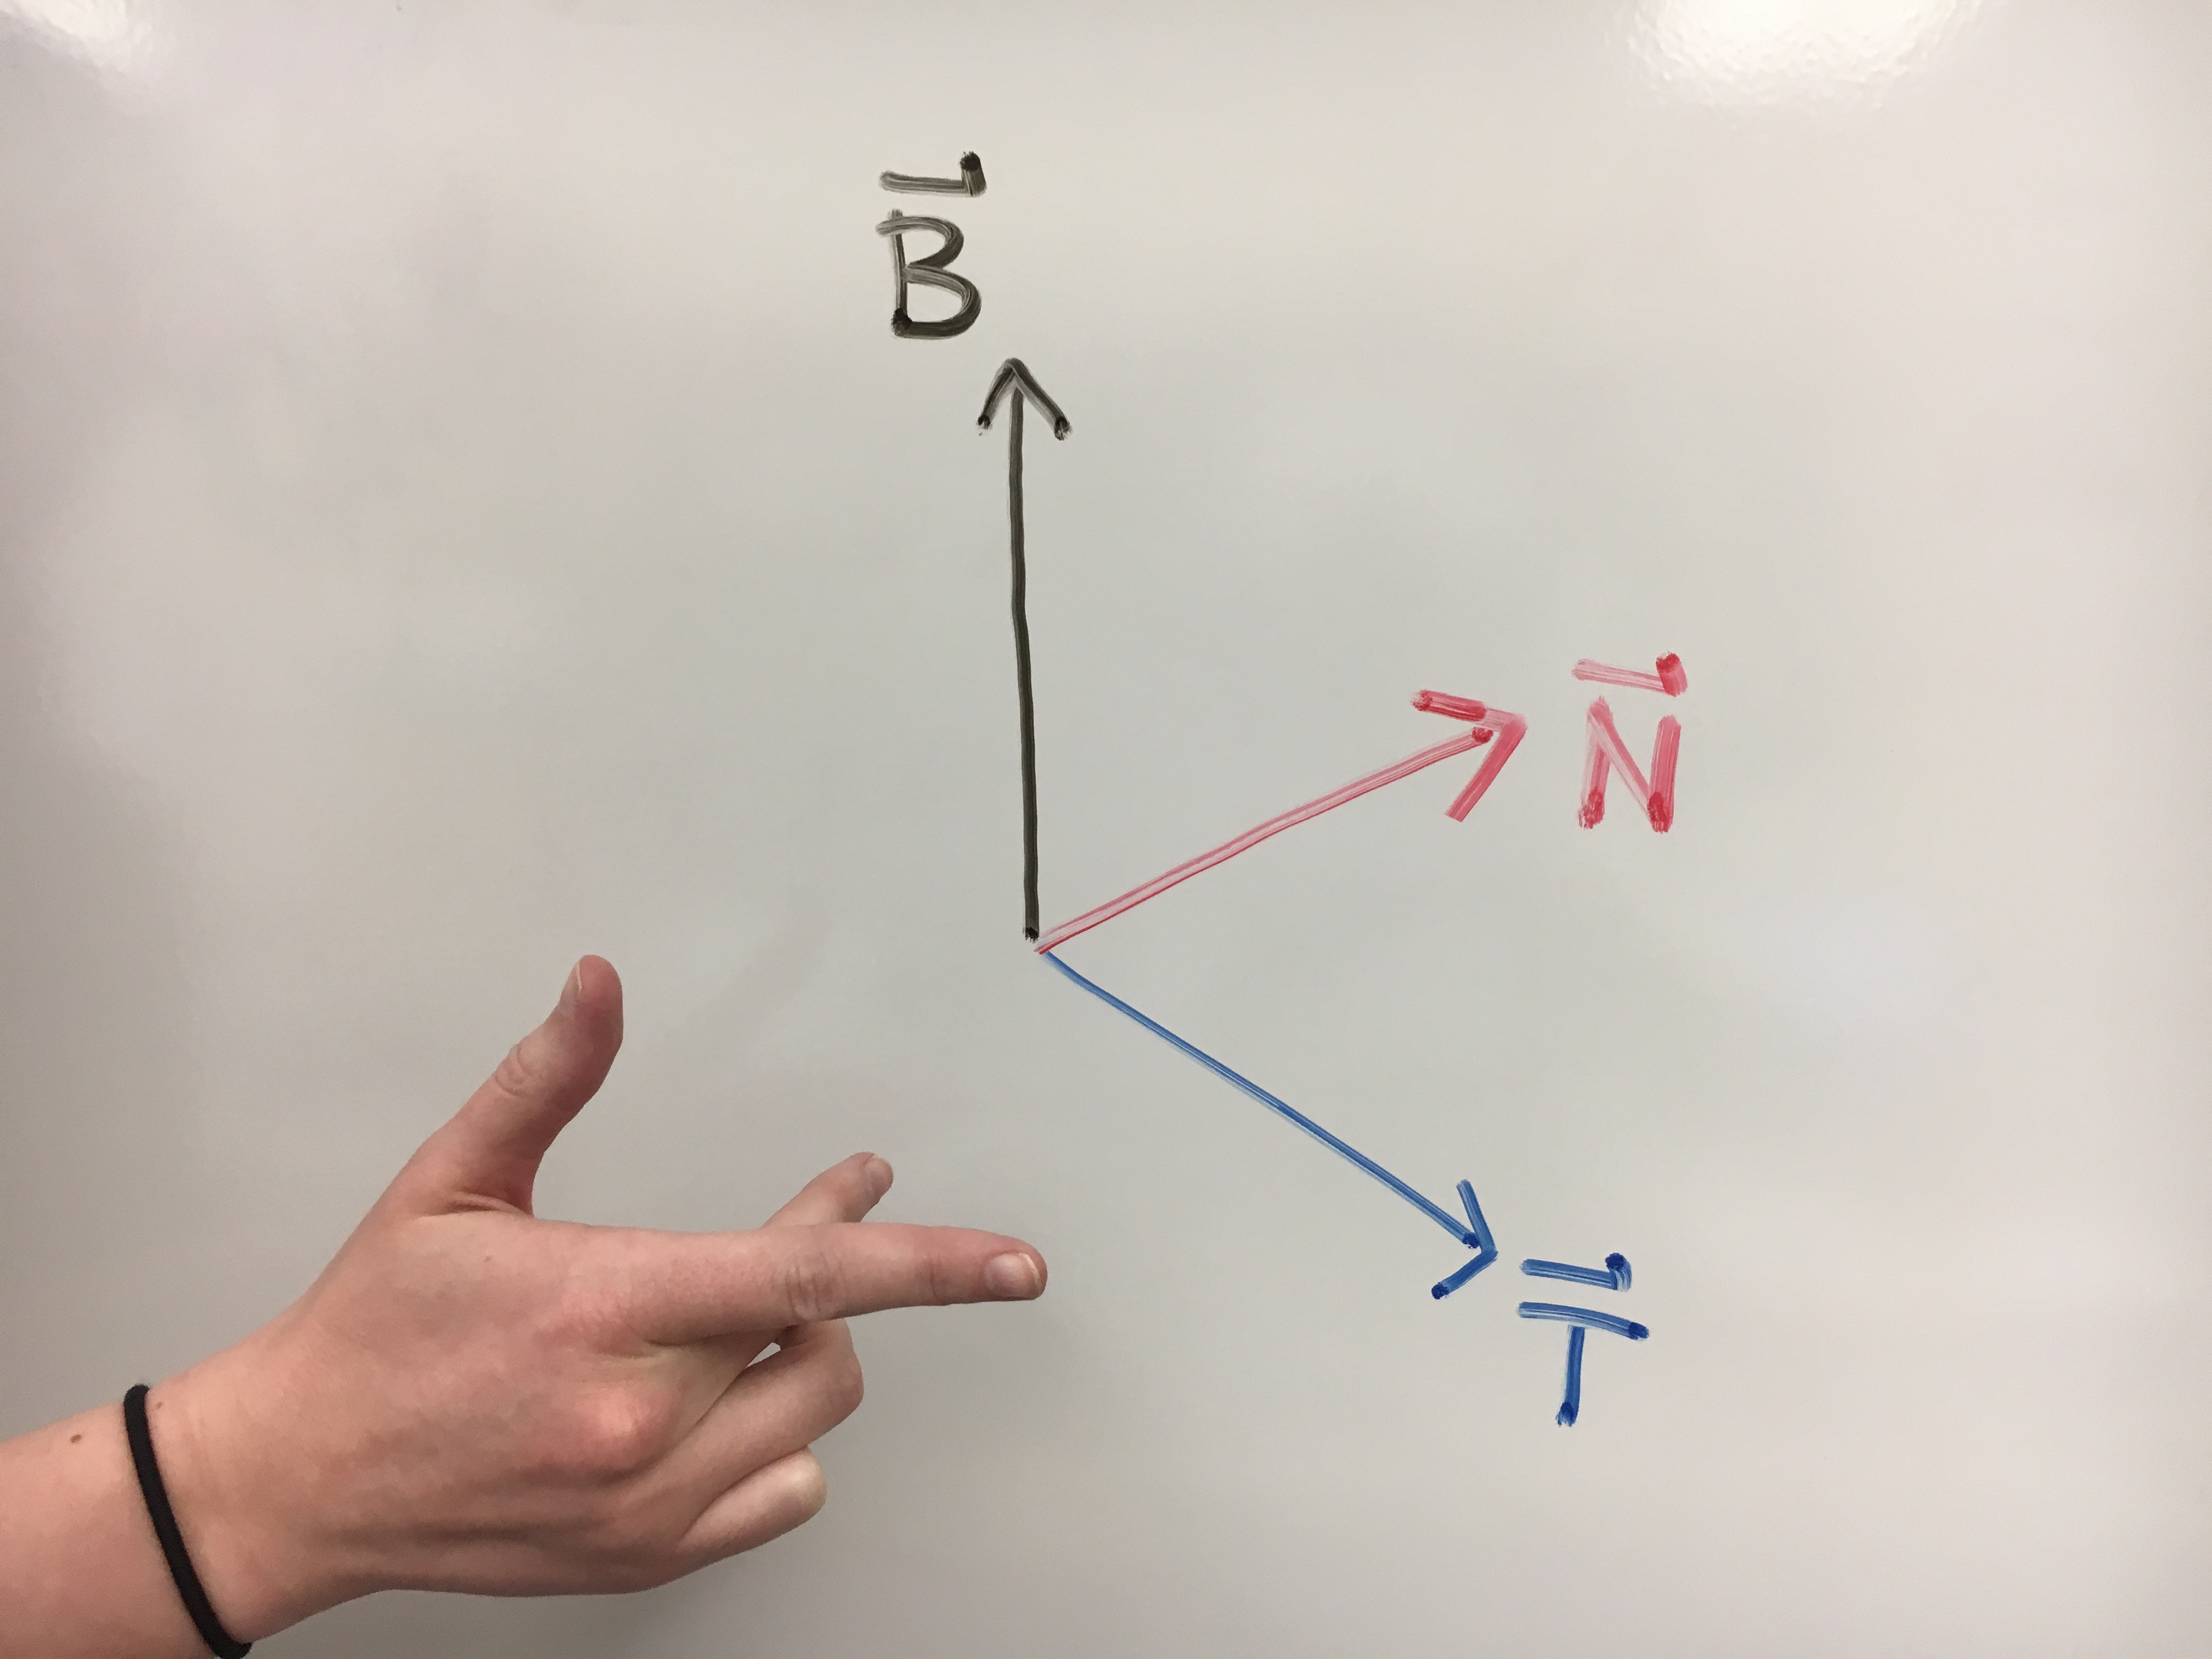 B⃗
N⃗
T⃗